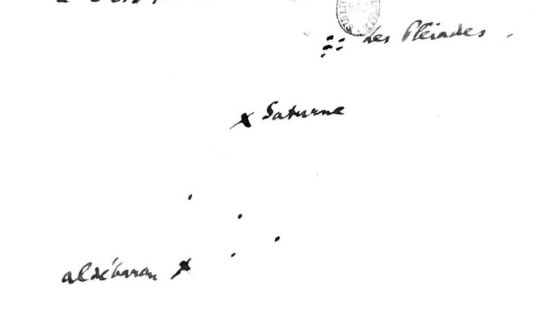 les Pléiades
Saturne
aldébaran